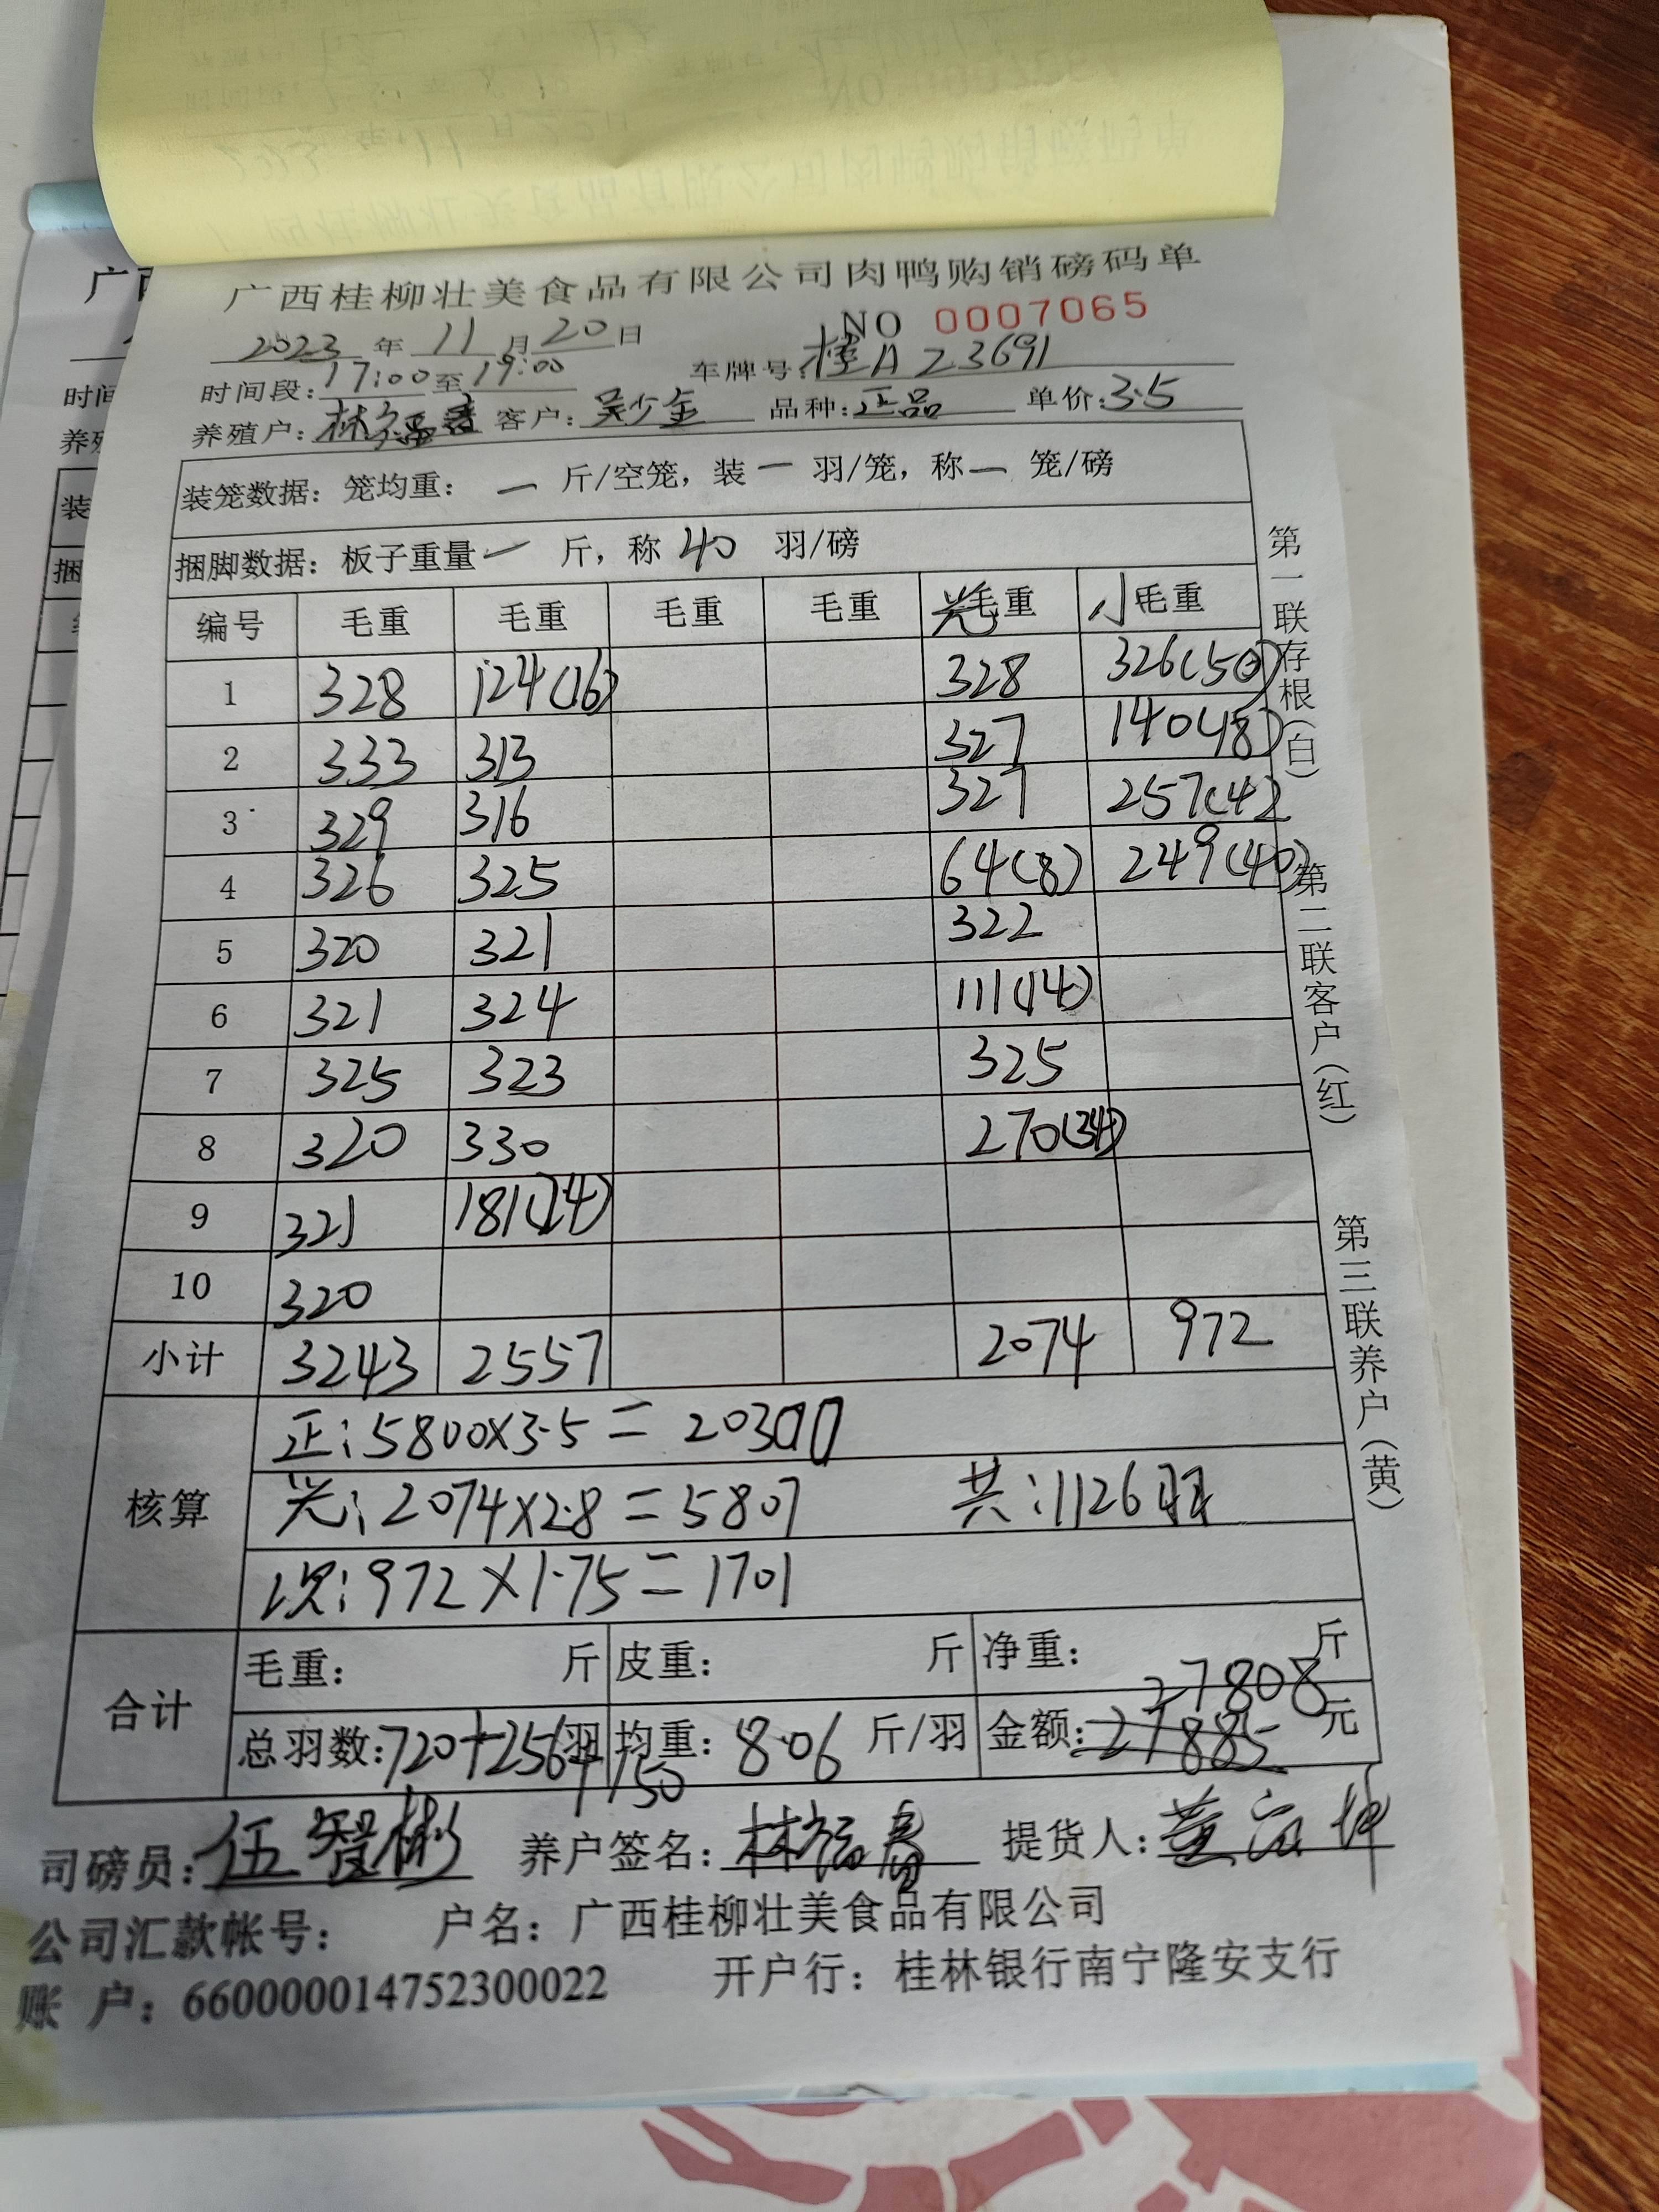 广西桂柳壮美食品有限公司肉鸭购销磅码单
NO 0007065
2023 年 11 月 20 日
时间段: 17:00 至 19:00 车牌号: 桂A23691
养殖户: 林福春 客户: 吴少金 品种: 正品 单价: 3.5
装笼数据: 笼均重: 一 斤/空笼, 装 一 羽/笼, 称 一 笼/磅
捆脚数据: 板子重量 一 斤, 称 40 羽/磅
编号 毛重 毛重 毛重 毛重 光毛重 小毛重
1 328 124(16) 328 326(50)
2 333 313 327 140(18)
3 329 316 327 257(42
4 326 325 64(8) 249(40)
5 320 321 322
6 321 324 111(14)
7 325 323 325
8 320 330 270(34)
9 321 181(24)
10 320
小计 3243 2557 2074 972
核算
正: 5800×3.5=20300
光: 2074×2.8=5807 共: 1126羽
次: 972×1.75=1701
合计
毛重: 斤 皮重: 斤 净重: 斤
27808
总羽数: 720+256羽+150 均重: 8.06 斤/羽 金额: 27885 元
司磅员: 伍智彬 养户签名: 林福春 提货人:
公司汇款帐号: 户名: 广西桂柳壮美食品有限公司
账 户: 660000014752300022 开户行: 桂林银行南宁隆安支行
第一联存根(白)
第二联客户(红)
第三联养户(黄)